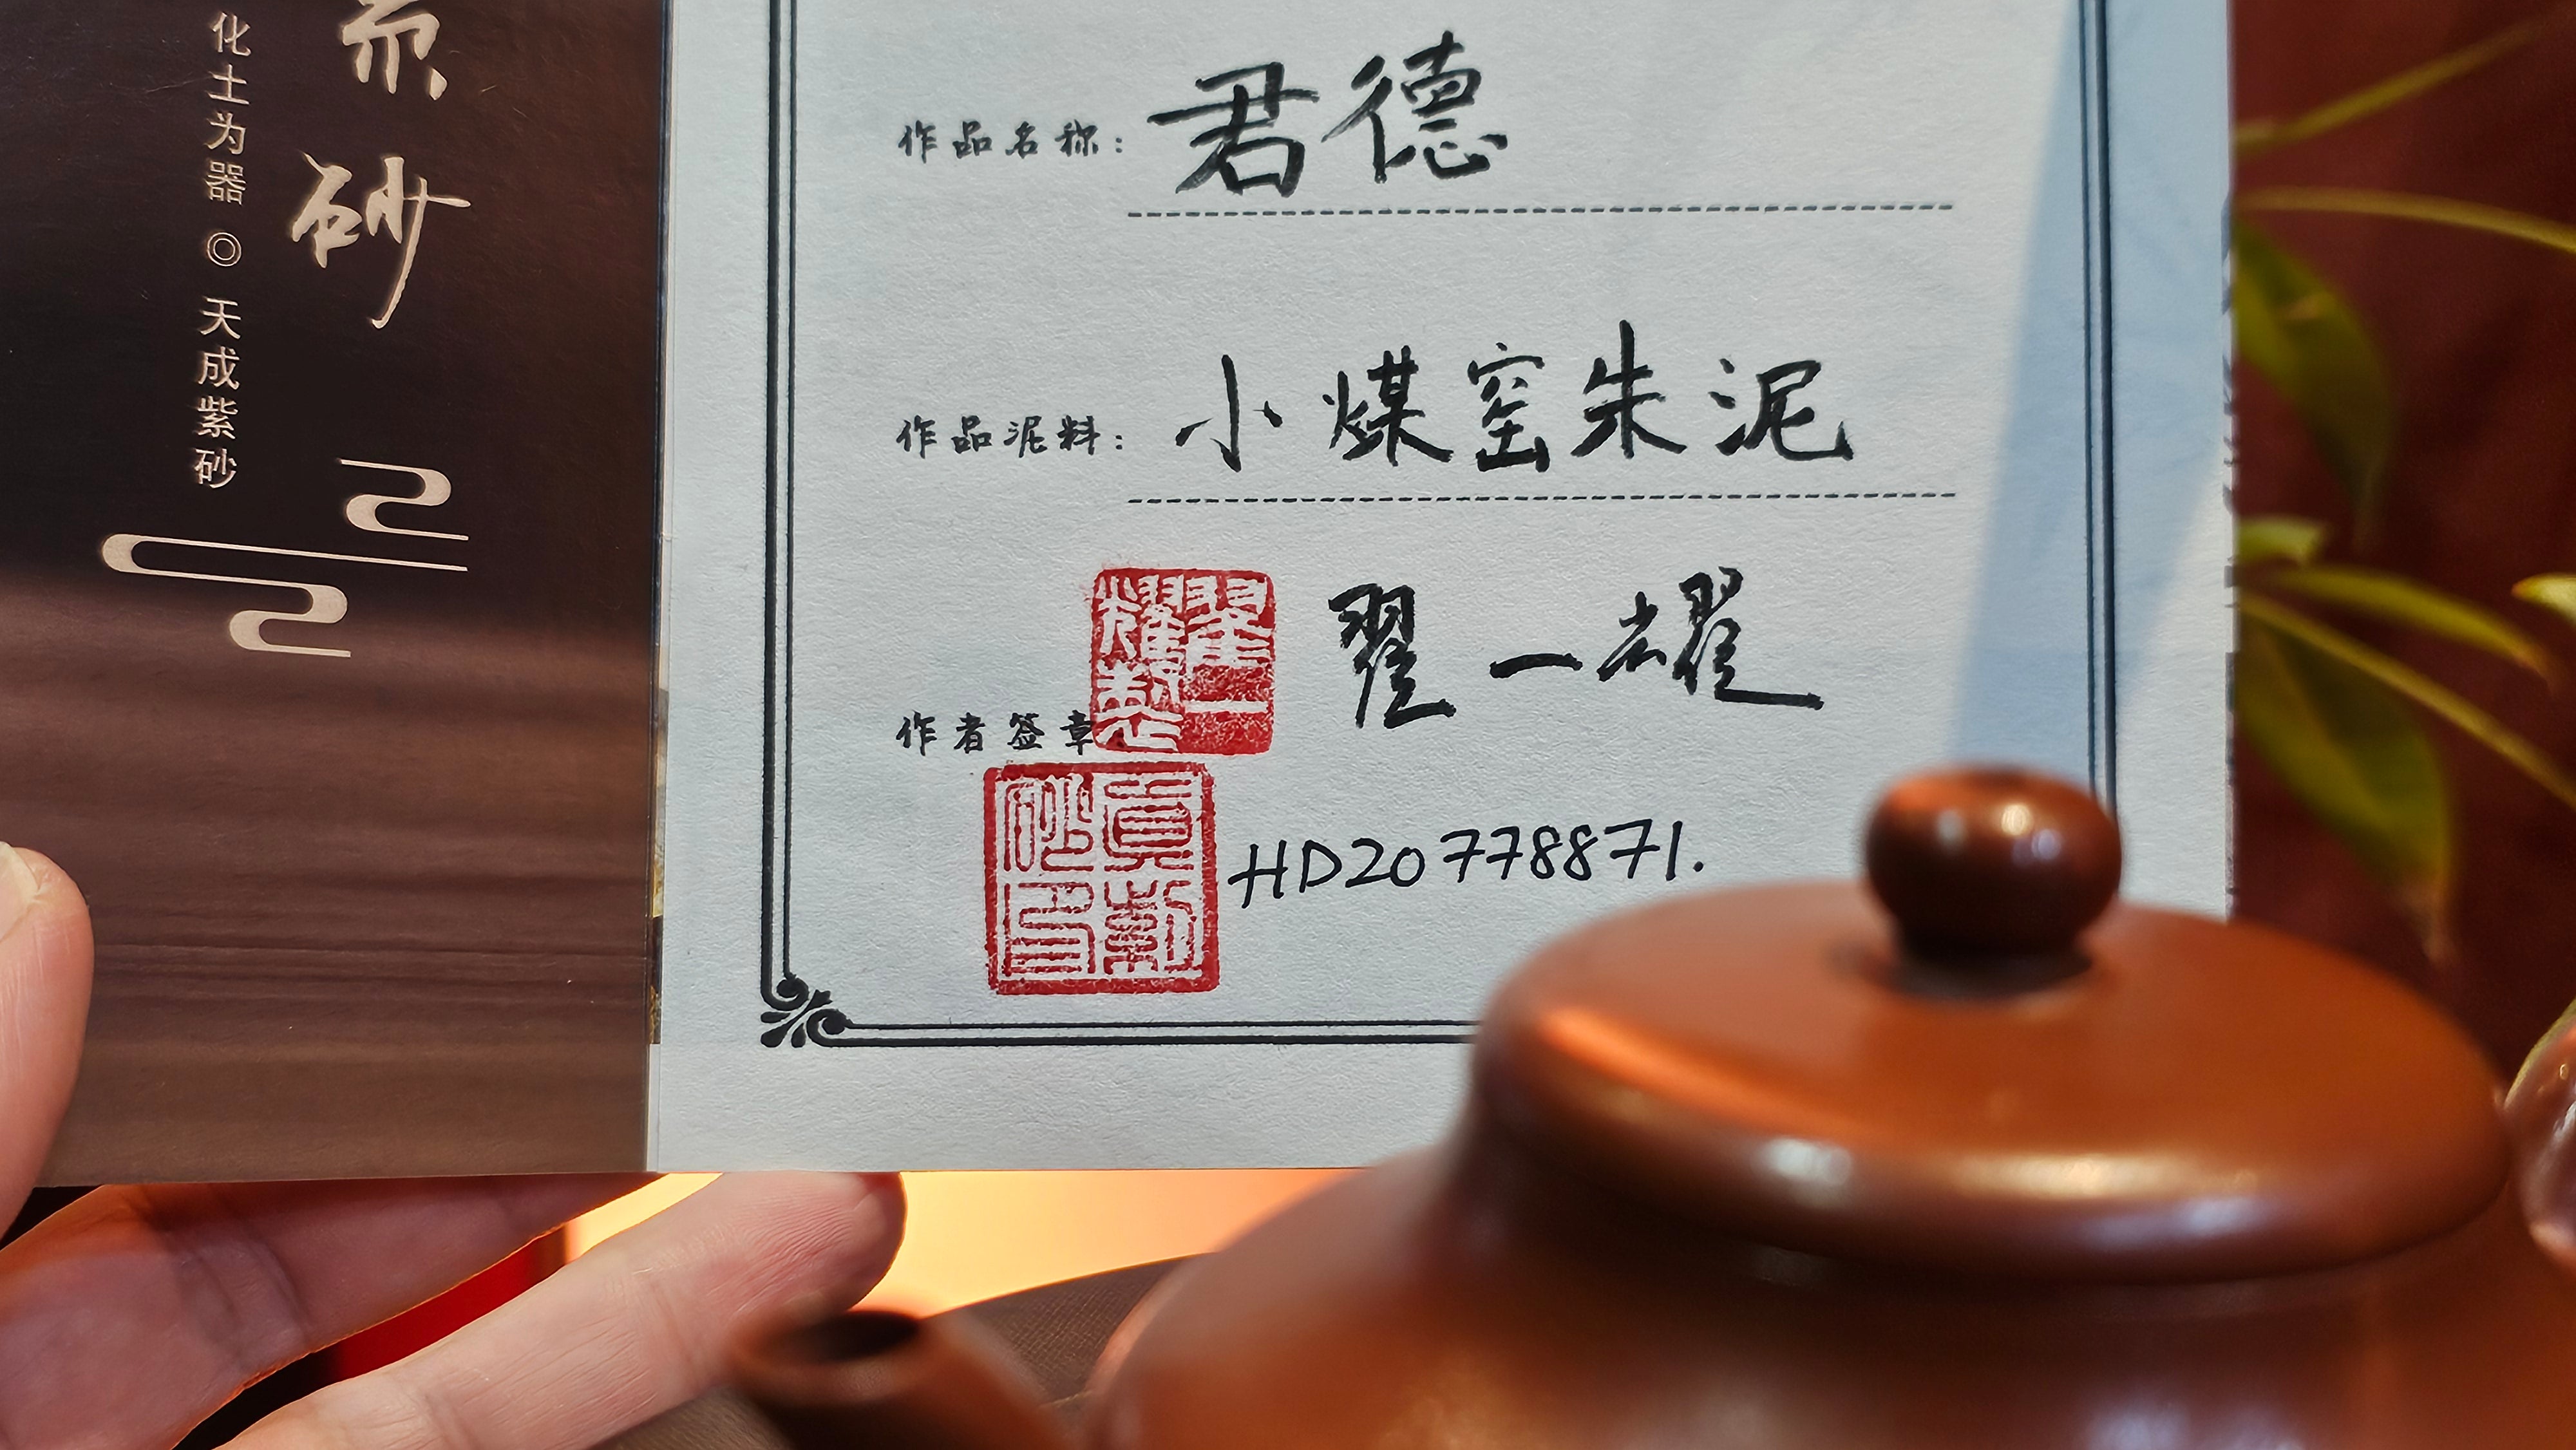 紫砂
化土为器 ◎ 天成紫砂
作品名称：君德
作品泥料：小煤窑朱泥
作者签章
翟一耀
翟一耀製
真紫砂印
HD20778871.